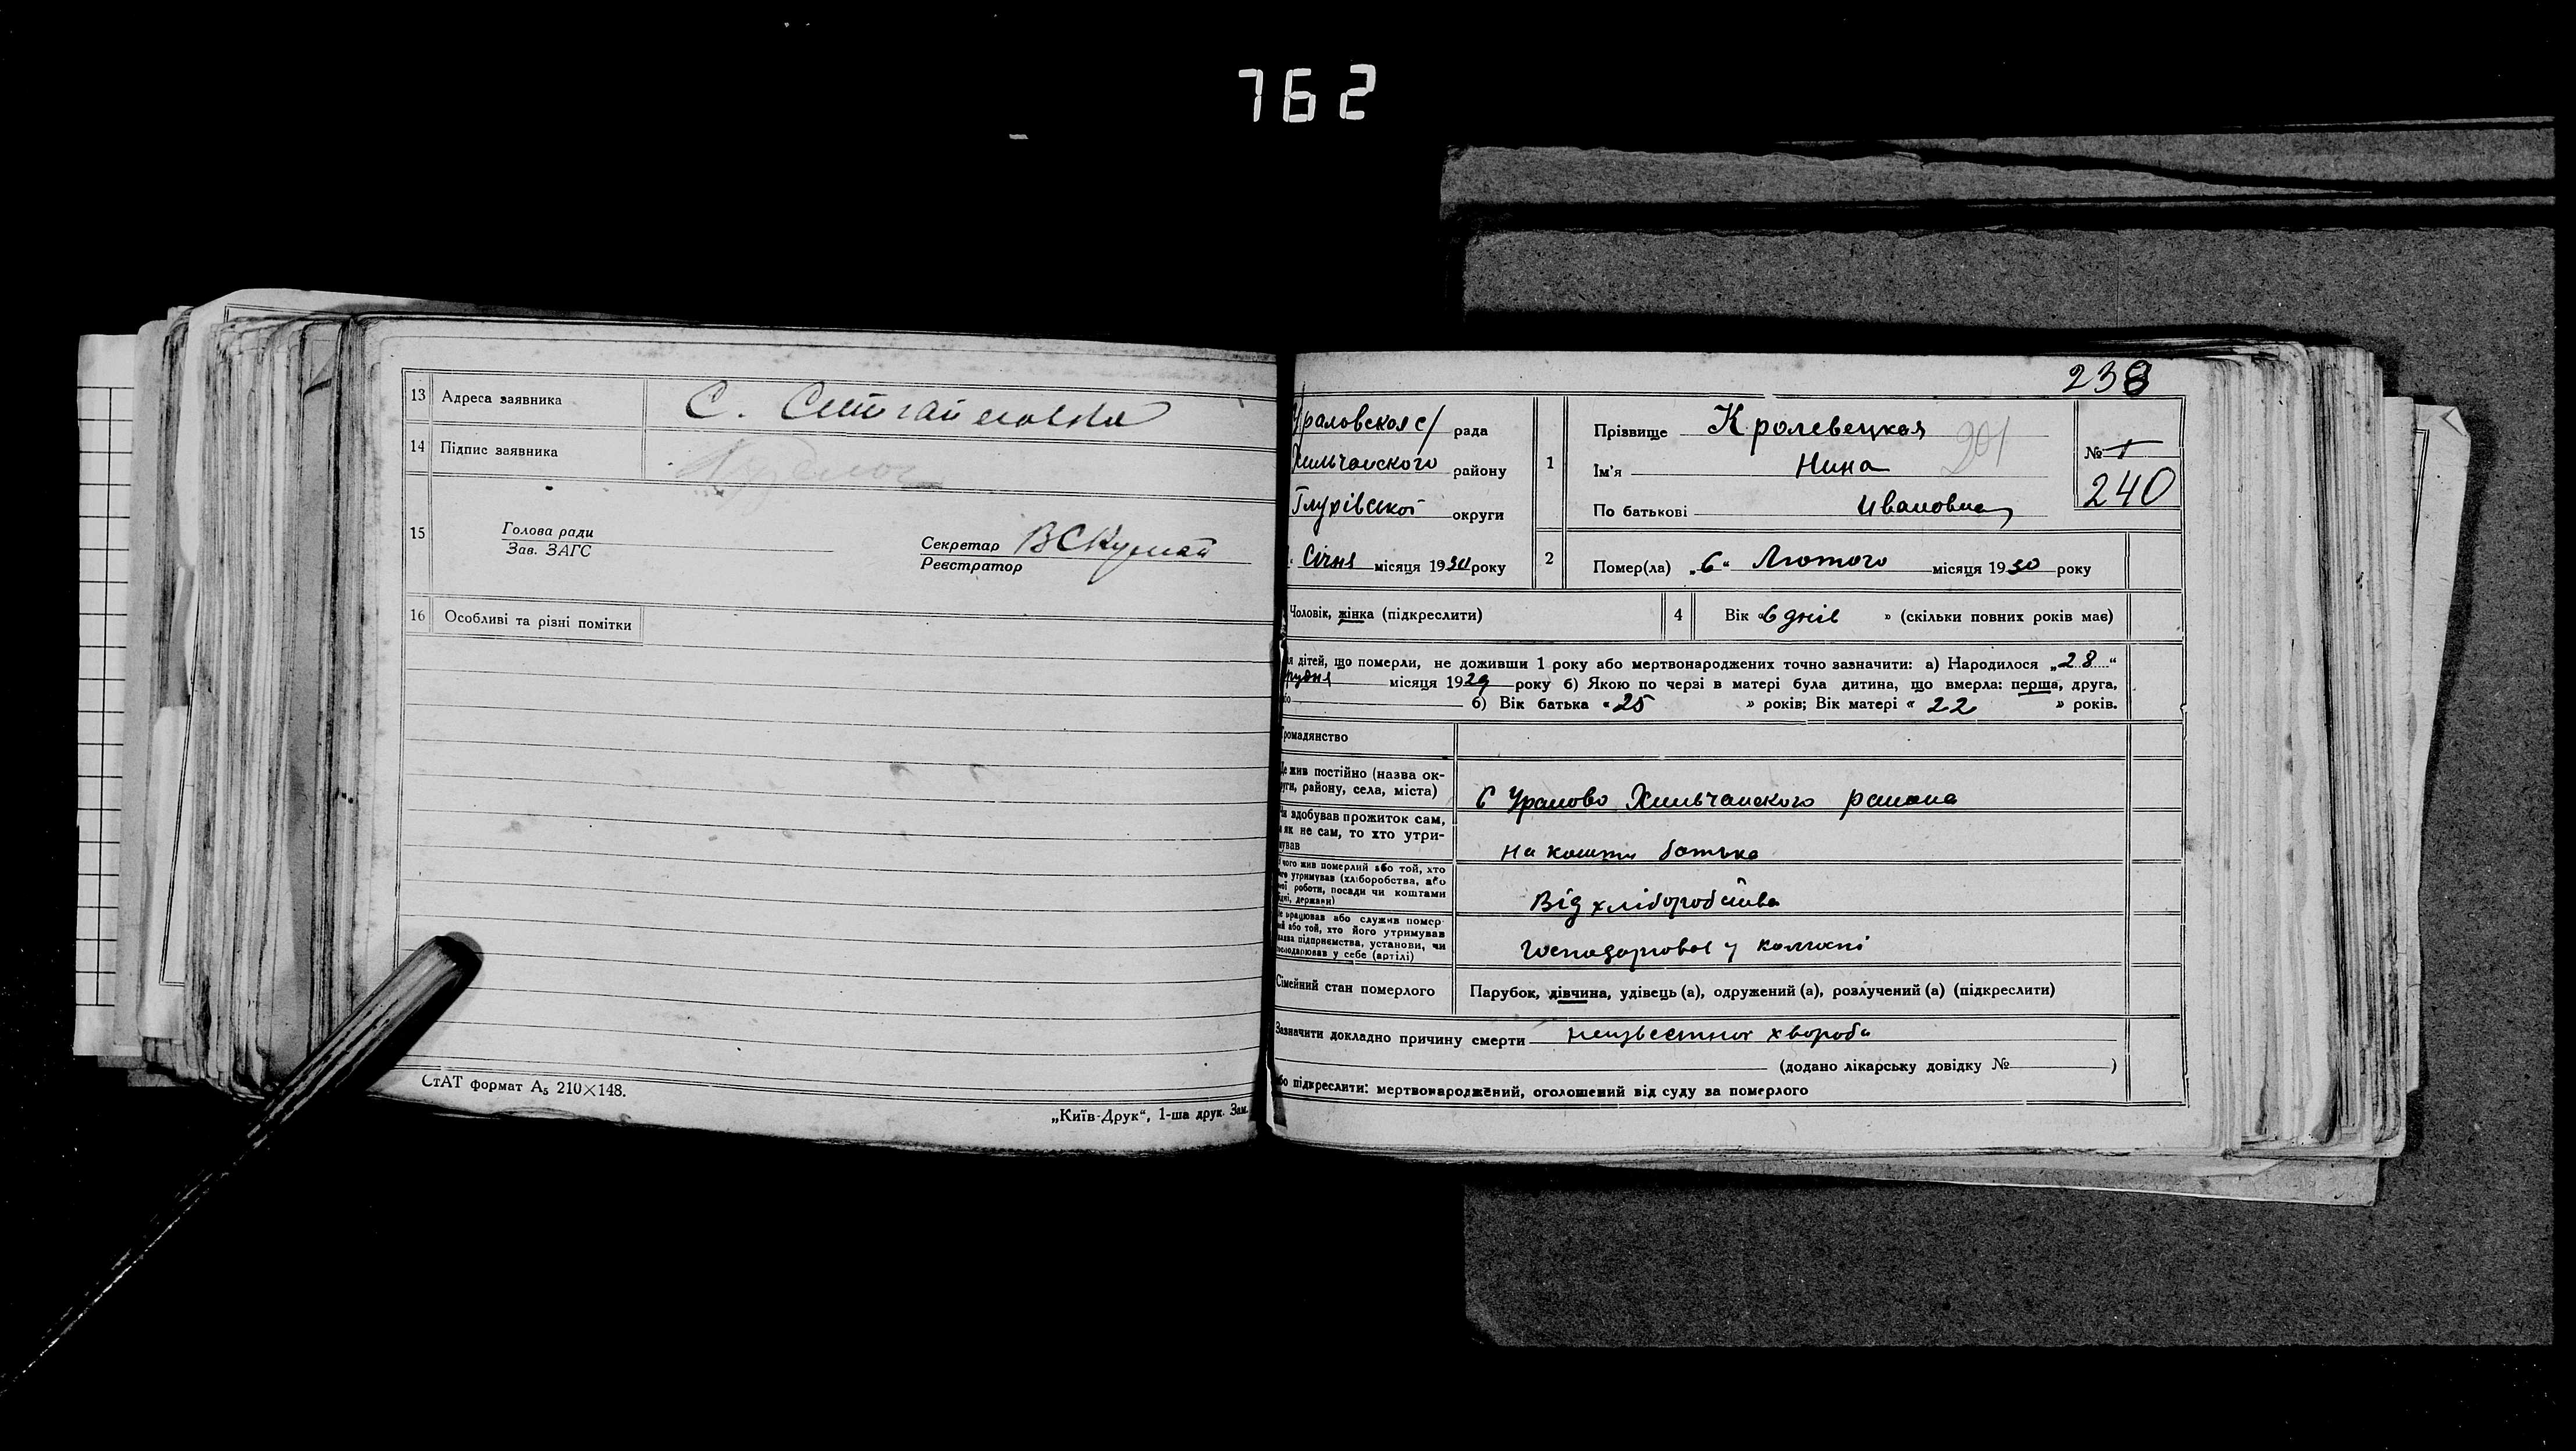 762
13 Адреса заявника
14 Підпис заявника
15 Голова ради
Зав. ЗАГС
Секретар
Реєстратор
16 Особливі та різні помітки
СтАТ формат А5 210×148.
„Київ-Друк“, 1-ша друк. Зам.
238
рада
Хильчанского району
Глухівської округи
Січня місяця 1930 року
1 Прізвище Кролевецкая
Ім'я Нина
По батькові Ивановна
201
№ 1
240
2 Помер(ла) „6“ Лютого місяця 1930 року
Чоловік, жінка (підкреслити)
4 Вік «6 днів » (скільки повних років має)
дітей, що померли, не доживши 1 року або мертвонароджених точно зазначити: а) Народилося „28“
місяця 1929 року б) Якою по черзі в матері була дитина, що вмерла: перша, друга,
б) Вік батька «25 » років; Вік матері « 22 » років.
ромадянство
жив постійно (назва ок-
руги, району, села, міста)
с Уралово Хильчанского района
вдобував прожиток сам,
як не сам, то хто утри-
мував
На кошти батька
чого жив померлий або той, хто
утримував (хліборобства, або
роботи, посади чи коштами
держави)
Від хліборобства
працював або служив помер-
або той, хто його утримував
підприємства, установи, чи
господарював у себе (артілі)
у колгоспі
Сімейний стан померлого
Парубок, дівчина, удівець (а), одружений (а), розлучений (а) (підкреслити)
Зазначити докладно причину смерти неизвестная хвороба
(додано лікарську довідку № )
або підкреслити: мертвонароджений, оголошений від суду за померлого